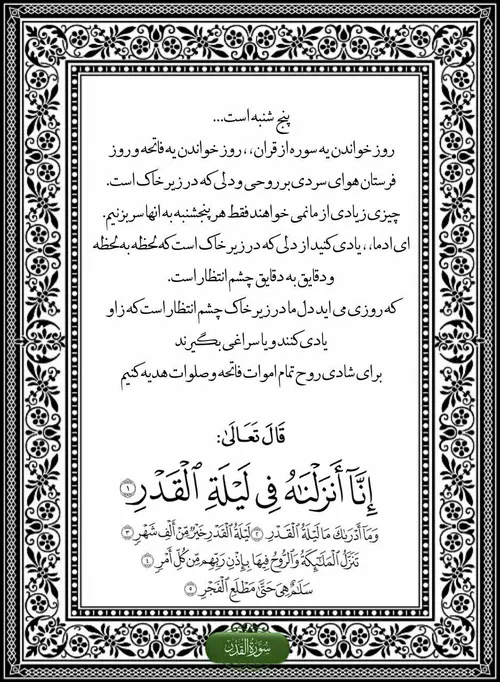 پنج شنبه است...
روز خواندن یه سوره از قران،، روز خواندن یه فاتحه و روز
فرستان هوای سردی بر روحی و دلی که در زیر خاک است.
چیزی زیادی از ما نمی خواهند فقط هر پنجشنبه به انها سر بزنیم.
ای ادما،، یادی کنید از دلی که در زیر خاک است که لحظه به لحظه
و دقایق به دقایق چشم انتظار است.
که روزی می اید دل ما در زیر خاک چشم انتظار است که ز او
یادی کنند و یا سراغی بگیرند
برای شادی روح تمام اموات فاتحه و صلوات هدیه کنیم
قَالَ تَعَالَىٰ:
إِنَّآ أَنزَلْنَٰهُ فِى لَيْلَةِ ٱلْقَدْرِ ١
وَمَآ أَدْرَىٰكَ مَا لَيْلَةُ ٱلْقَدْرِ ٢ لَيْلَةُ ٱلْقَدْرِ خَيْرٌ مِّنْ أَلْفِ شَهْرٍ ٣
تَنَزَّلُ ٱلْمَلَٰٓئِكَةُ وَٱلرُّوحُ فِيهَا بِإِذْنِ رَبِّهِم مِّن كُلِّ أَمْرٍ ٤
سَلَٰمٌ هِىَ حَتَّىٰ مَطْلَعِ ٱلْفَجْرِ ٥
سُورَةُ القَدْرِ